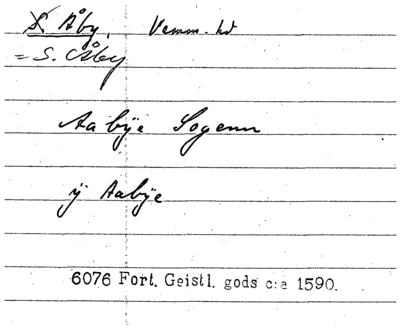 S. Åby, Vemm. hd
= S. Åby
Aabÿe Sogenn
ÿ Aabÿe
6076 Fort. Geistl. gods c:a 1590.